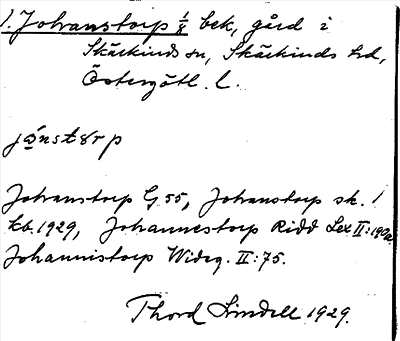 1. Johanstorp 1/8 bek, gård i
Skärkinds sn, Skärkinds hd,
Östergötl. l.
jónstʊrp
Johanstorp G 55, Johanstorp sk. 1
kb. 1929, Johannestorp Ridd Lex II:
Johannistorp Wideg. II:75.
Thord Lindell 1929.